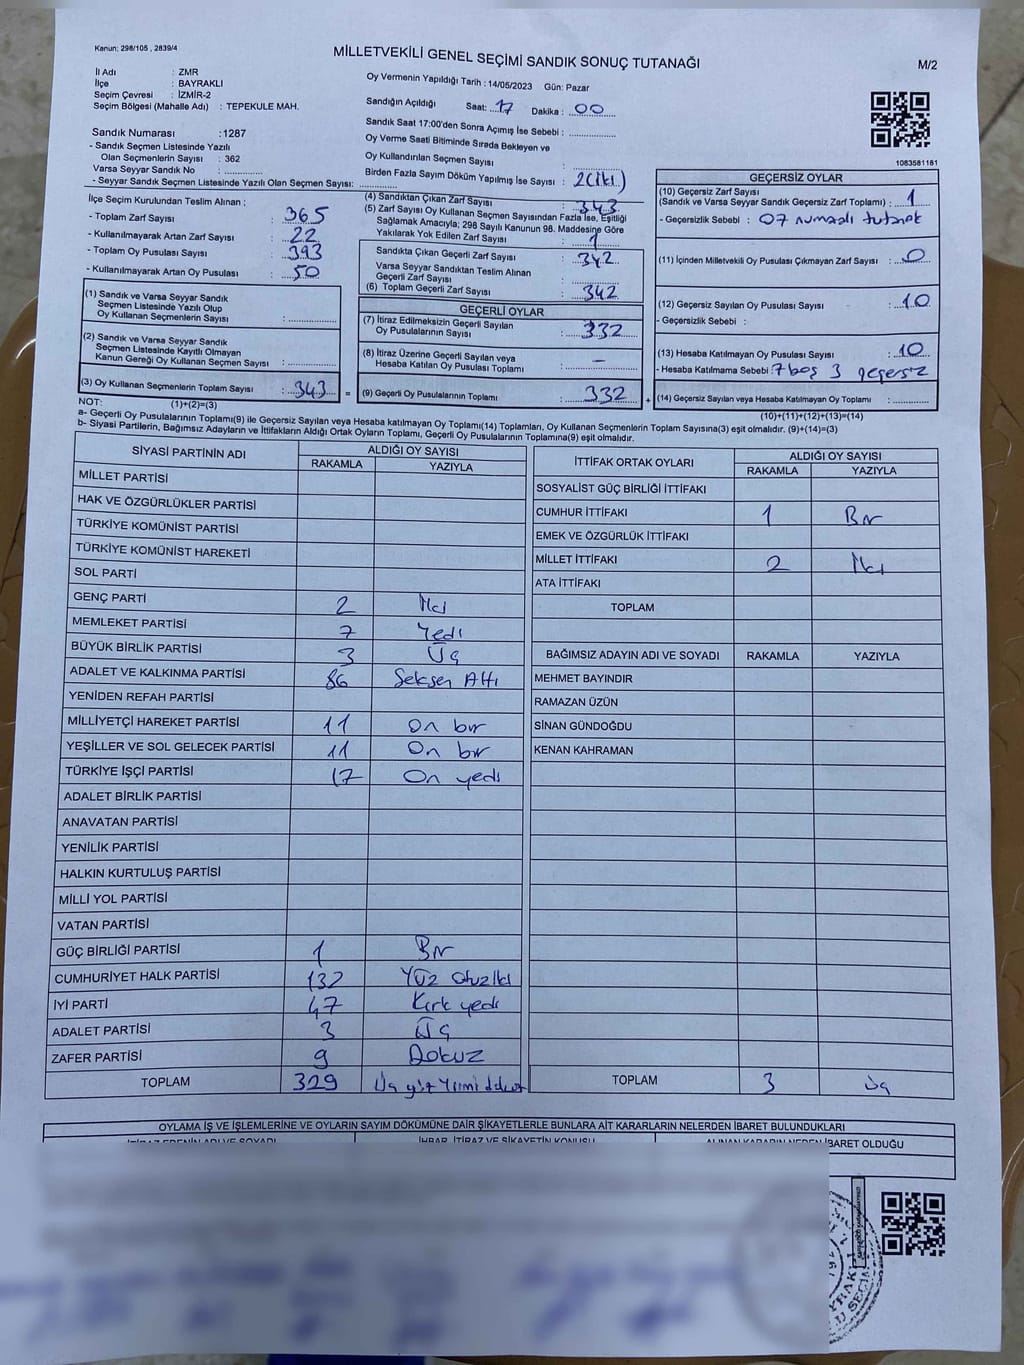 Kanun: 298/105 , 2839/4
MİLLETVEKİLİ GENEL SEÇİMİ SANDIK SONUÇ TUTANAĞI
M/2
İl Adı : ZMR
İlçe : BAYRAKLI
Seçim Çevresi : İZMİR-2
Seçim Bölgesi (Mahalle Adı) : TEPEKULE MAH.
Oy Vermenin Yapıldığı Tarih : 14/05/2023 Gün: Pazar
Sandığın Açıldığı Saat: 17 Dakika : 00
Sandık Saat 17:00'den Sonra Açımış İse Sebebi :
Oy Verme Saati Bitiminde Sırada Bekleyen ve
Oy Kullandırılan Seçmen Sayısı :
Birden Fazla Sayım Döküm Yapılmış İse Sayısı : 2(iki)
1083581181
Sandık Numarası :1287
- Sandık Seçmen Listesinde Yazılı
Olan Seçmenlerin Sayısı : 362
Varsa Seyyar Sandık No :
- Seyyar Sandık Seçmen Listesinde Yazılı Olan Seçmen Sayısı:
İlçe Seçim Kurulundan Teslim Alınan :
- Toplam Zarf Sayısı : 365
- Kullanılmayarak Artan Zarf Sayısı : 22
- Toplam Oy Pusulası Sayısı : 393
- Kullanılmayarak Artan Oy Pusulası : 50
(1) Sandık ve Varsa Seyyar Sandık
Seçmen Listesinde Yazılı Olup
Oy Kullanan Seçmenlerin Sayısı :
(2) Sandık ve Varsa Seyyar Sandık
Seçmen Listesinde Kayıtlı Olmayan
Kanun Gereği Oy Kullanan Seçmen Sayısı :
(3) Oy Kullanan Seçmenlerin Toplam Sayısı : 343 =
(4) Sandıktan Çıkan Zarf Sayısı : 343
(5) Zarf Sayısı Oy Kullanan Seçmen Sayısından Fazla İse, Eşitliği
Sağlamak Amacıyla; 298 Sayılı Kanunun 98. Maddesine Göre
Yakılarak Yok Edilen Zarf Sayısı : 1
Sandıkta Çıkan Geçerli Zarf Sayısı : 342
Varsa Seyyar Sandıktan Teslim Alınan
Geçerli Zarf Sayısı :
(6) Toplam Geçerli Zarf Sayısı : 342
GEÇERLİ OYLAR
(7) İtiraz Edilmeksizin Geçerli Sayılan
Oy Pusulalarının Sayısı : 332
(8) İtiraz Üzerine Geçerli Sayılan veya
Hesaba Katılan Oy Pusulası Toplamı : –
(9) Geçerli Oy Pusulalarının Toplamı : 332 +
GEÇERSİZ OYLAR
(10) Geçersiz Zarf Sayısı
(Sandık ve Varsa Seyyar Sandık Geçersiz Zarf Toplamı) : 1
- Geçersizlik Sebebi : 07 numaralı tutanak
(11) İçinden Milletvekili Oy Pusulası Çıkmayan Zarf Sayısı : 0
(12) Geçersiz Sayılan Oy Pusulası Sayısı : 10
- Geçersizlik Sebebi :
(13) Hesaba Katılmayan Oy Pusulası Sayısı : 10
- Hesaba Katılmama Sebebi : 7 boş 3 geçersiz
(14) Geçersiz Sayılan veya Hesaba Katılmayan Oy Toplamı :
NOT: (1)+(2)=(3) (10)+(11)+(12)+(13)=(14)
a- Geçerli Oy Pusulalarının Toplamı(9) ile Geçersiz Sayılan veya Hesaba katılmayan Oy Toplamı(14) Toplamları, Oy Kullanan Seçmenlerin Toplam Sayısına(3) eşit olmalıdır. (9)+(14)=(3)
b- Siyasi Partilerin, Bağımsız Adayların ve İttifakların Aldığı Ortak Oyların Toplamı, Geçerli Oy Pusulalarının Toplamına(9) eşit olmalıdır.
SİYASİ PARTİNİN ADI ALDIĞI OY SAYISI
RAKAMLA YAZIYLA
MİLLET PARTİSİ
HAK VE ÖZGÜRLÜKLER PARTİSİ
TÜRKİYE KOMÜNİST PARTİSİ
TÜRKİYE KOMÜNİST HAREKETİ
SOL PARTİ
GENÇ PARTİ 2 İki
MEMLEKET PARTİSİ 7 Yedi
BÜYÜK BİRLİK PARTİSİ 3 Üç
ADALET VE KALKINMA PARTİSİ 86 Seksen Altı
YENİDEN REFAH PARTİSİ
MİLLİYETÇİ HAREKET PARTİSİ 11 On bir
YEŞİLLER VE SOL GELECEK PARTİSİ 11 On bir
TÜRKİYE İŞÇİ PARTİSİ 17 On yedi
ADALET BİRLİK PARTİSİ
ANAVATAN PARTİSİ
YENİLİK PARTİSİ
HALKIN KURTULUŞ PARTİSİ
MİLLİ YOL PARTİSİ
VATAN PARTİSİ
GÜÇ BİRLİĞİ PARTİSİ 1 Bir
CUMHURİYET HALK PARTİSİ 132 Yüz otuz iki
İYİ PARTİ 47 Kırk yedi
ADALET PARTİSİ 3 Üç
ZAFER PARTİSİ 9 Dokuz
TOPLAM 329 Üç yüz Yirmi dokuz
İTTİFAK ORTAK OYLARI ALDIĞI OY SAYISI
RAKAMLA YAZIYLA
SOSYALİST GÜÇ BİRLİĞİ İTTİFAKI
CUMHUR İTTİFAKI 1 Bir
EMEK VE ÖZGÜRLÜK İTTİFAKI
MİLLET İTTİFAKI 2 İki
ATA İTTİFAKI
TOPLAM
BAĞIMSIZ ADAYIN ADI VE SOYADI RAKAMLA YAZIYLA
MEHMET BAYINDIR
RAMAZAN ÜZÜN
SİNAN GÜNDOĞDU
KENAN KAHRAMAN
TOPLAM 3 Üç
OYLAMA İŞ VE İŞLEMLERİNE VE OYLARIN SAYIM DÖKÜMÜNE DAİR ŞİKAYETLERLE BUNLARA AİT KARARLARIN NELERDEN İBARET BULUNDUKLARI
İTİRAZ EDENİN ADI VE SOYADI İHBAR, İTİRAZ VE ŞİKAYETİN KONUSU ALINAN KARARIN NEDEN İBARET OLDUĞU